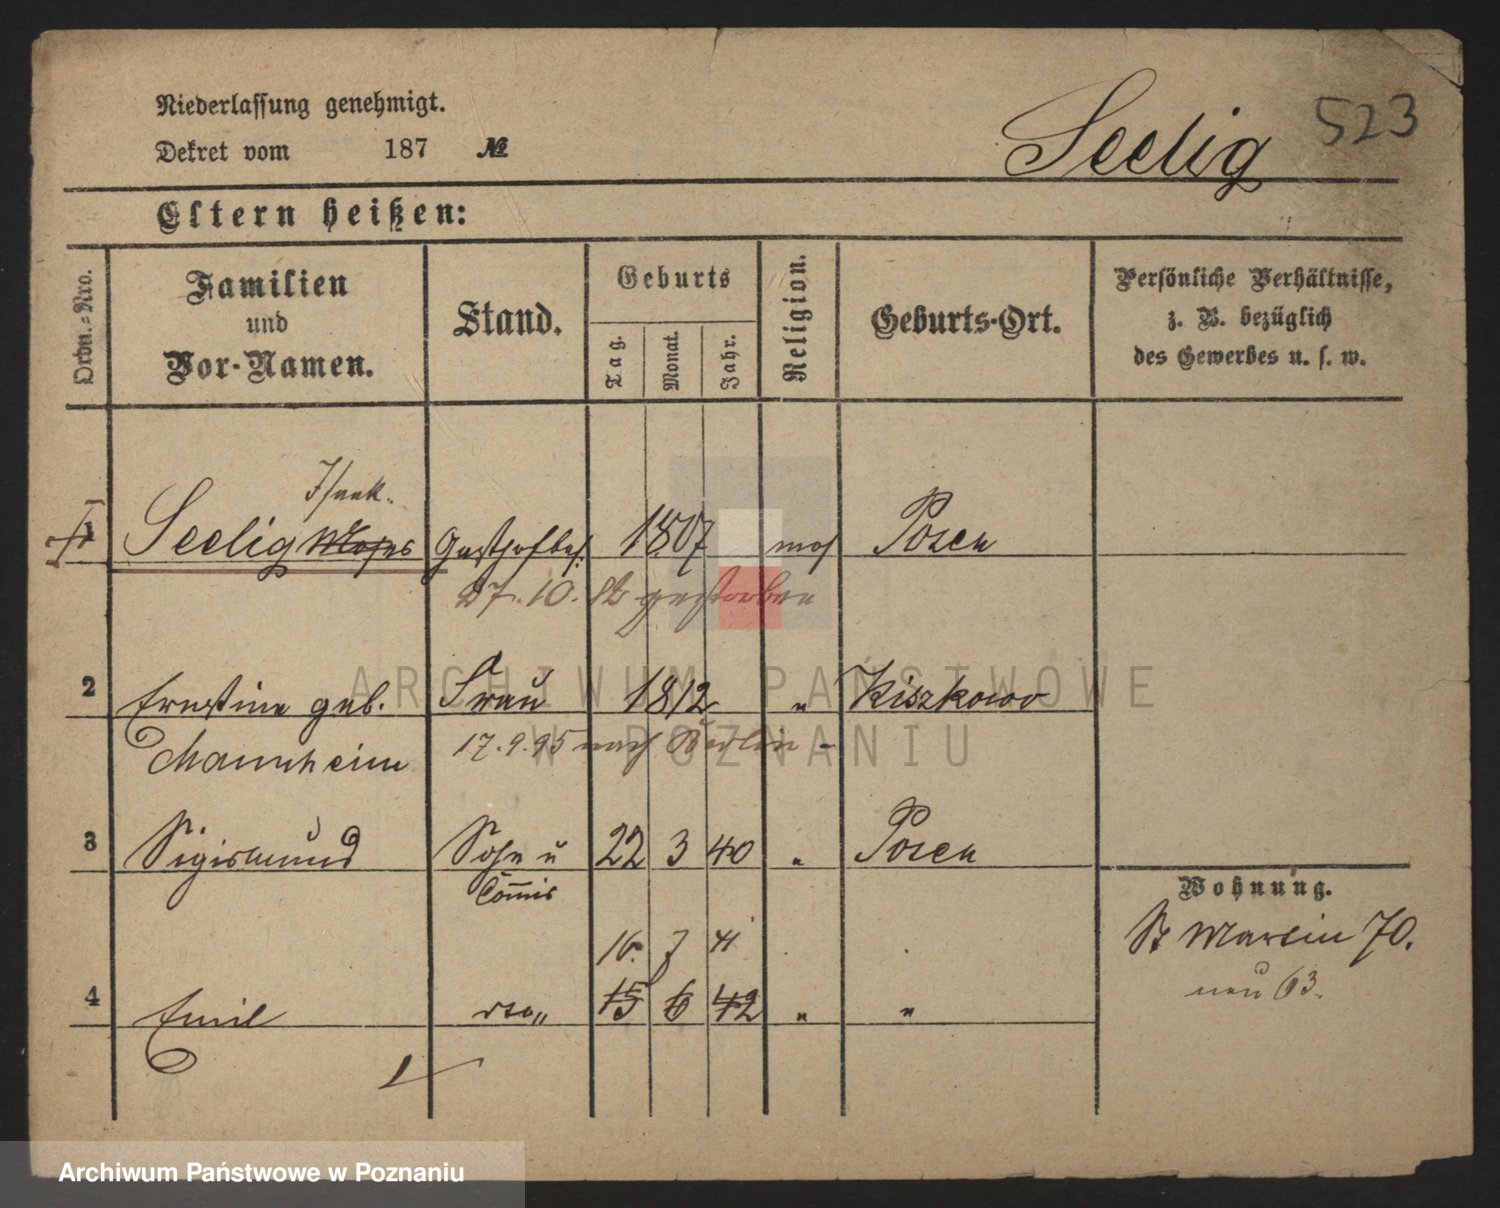 Niederlassung genehmigt.
Dekret vom 187 №
Seelig
523
Eltern heißen:
Ordn.-Nro.
Familien
und
Vor-Namen.
Stand.
Geburts
Tag.
Monat.
Jahr.
Religion.
Geburts-Ort.
Persönliche Verhältnisse,
z. B. bezüglich
des Gewerbes u. s. w.
Isaak.
1 Seelig Moses Gasthofbes. 1807 mos Posen
27.10. gestorben
2 Ernestine geb. Frau 1812 " Kiszkowo
Mannheim
17.9.95 nach Berlin -
3 Sigismund Sohn u 22 3 40 " Posen
Commis
Wohnung.
St Martin 70.
neu 63.
16. 7 41
4 Emil dto " 15 6 42 " "
ARCHIWUM PAŃSTWOWE
W POZNANIU
Archiwum Państwowe w Poznaniu